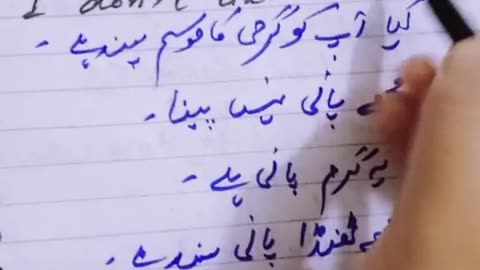 I don't
کیا آپ کو گرمی کا موسم پسند ہے -
پانی نہیں پینا -
یہ گرم پانی ہے -
ٹھنڈا پانی پسند ہے -